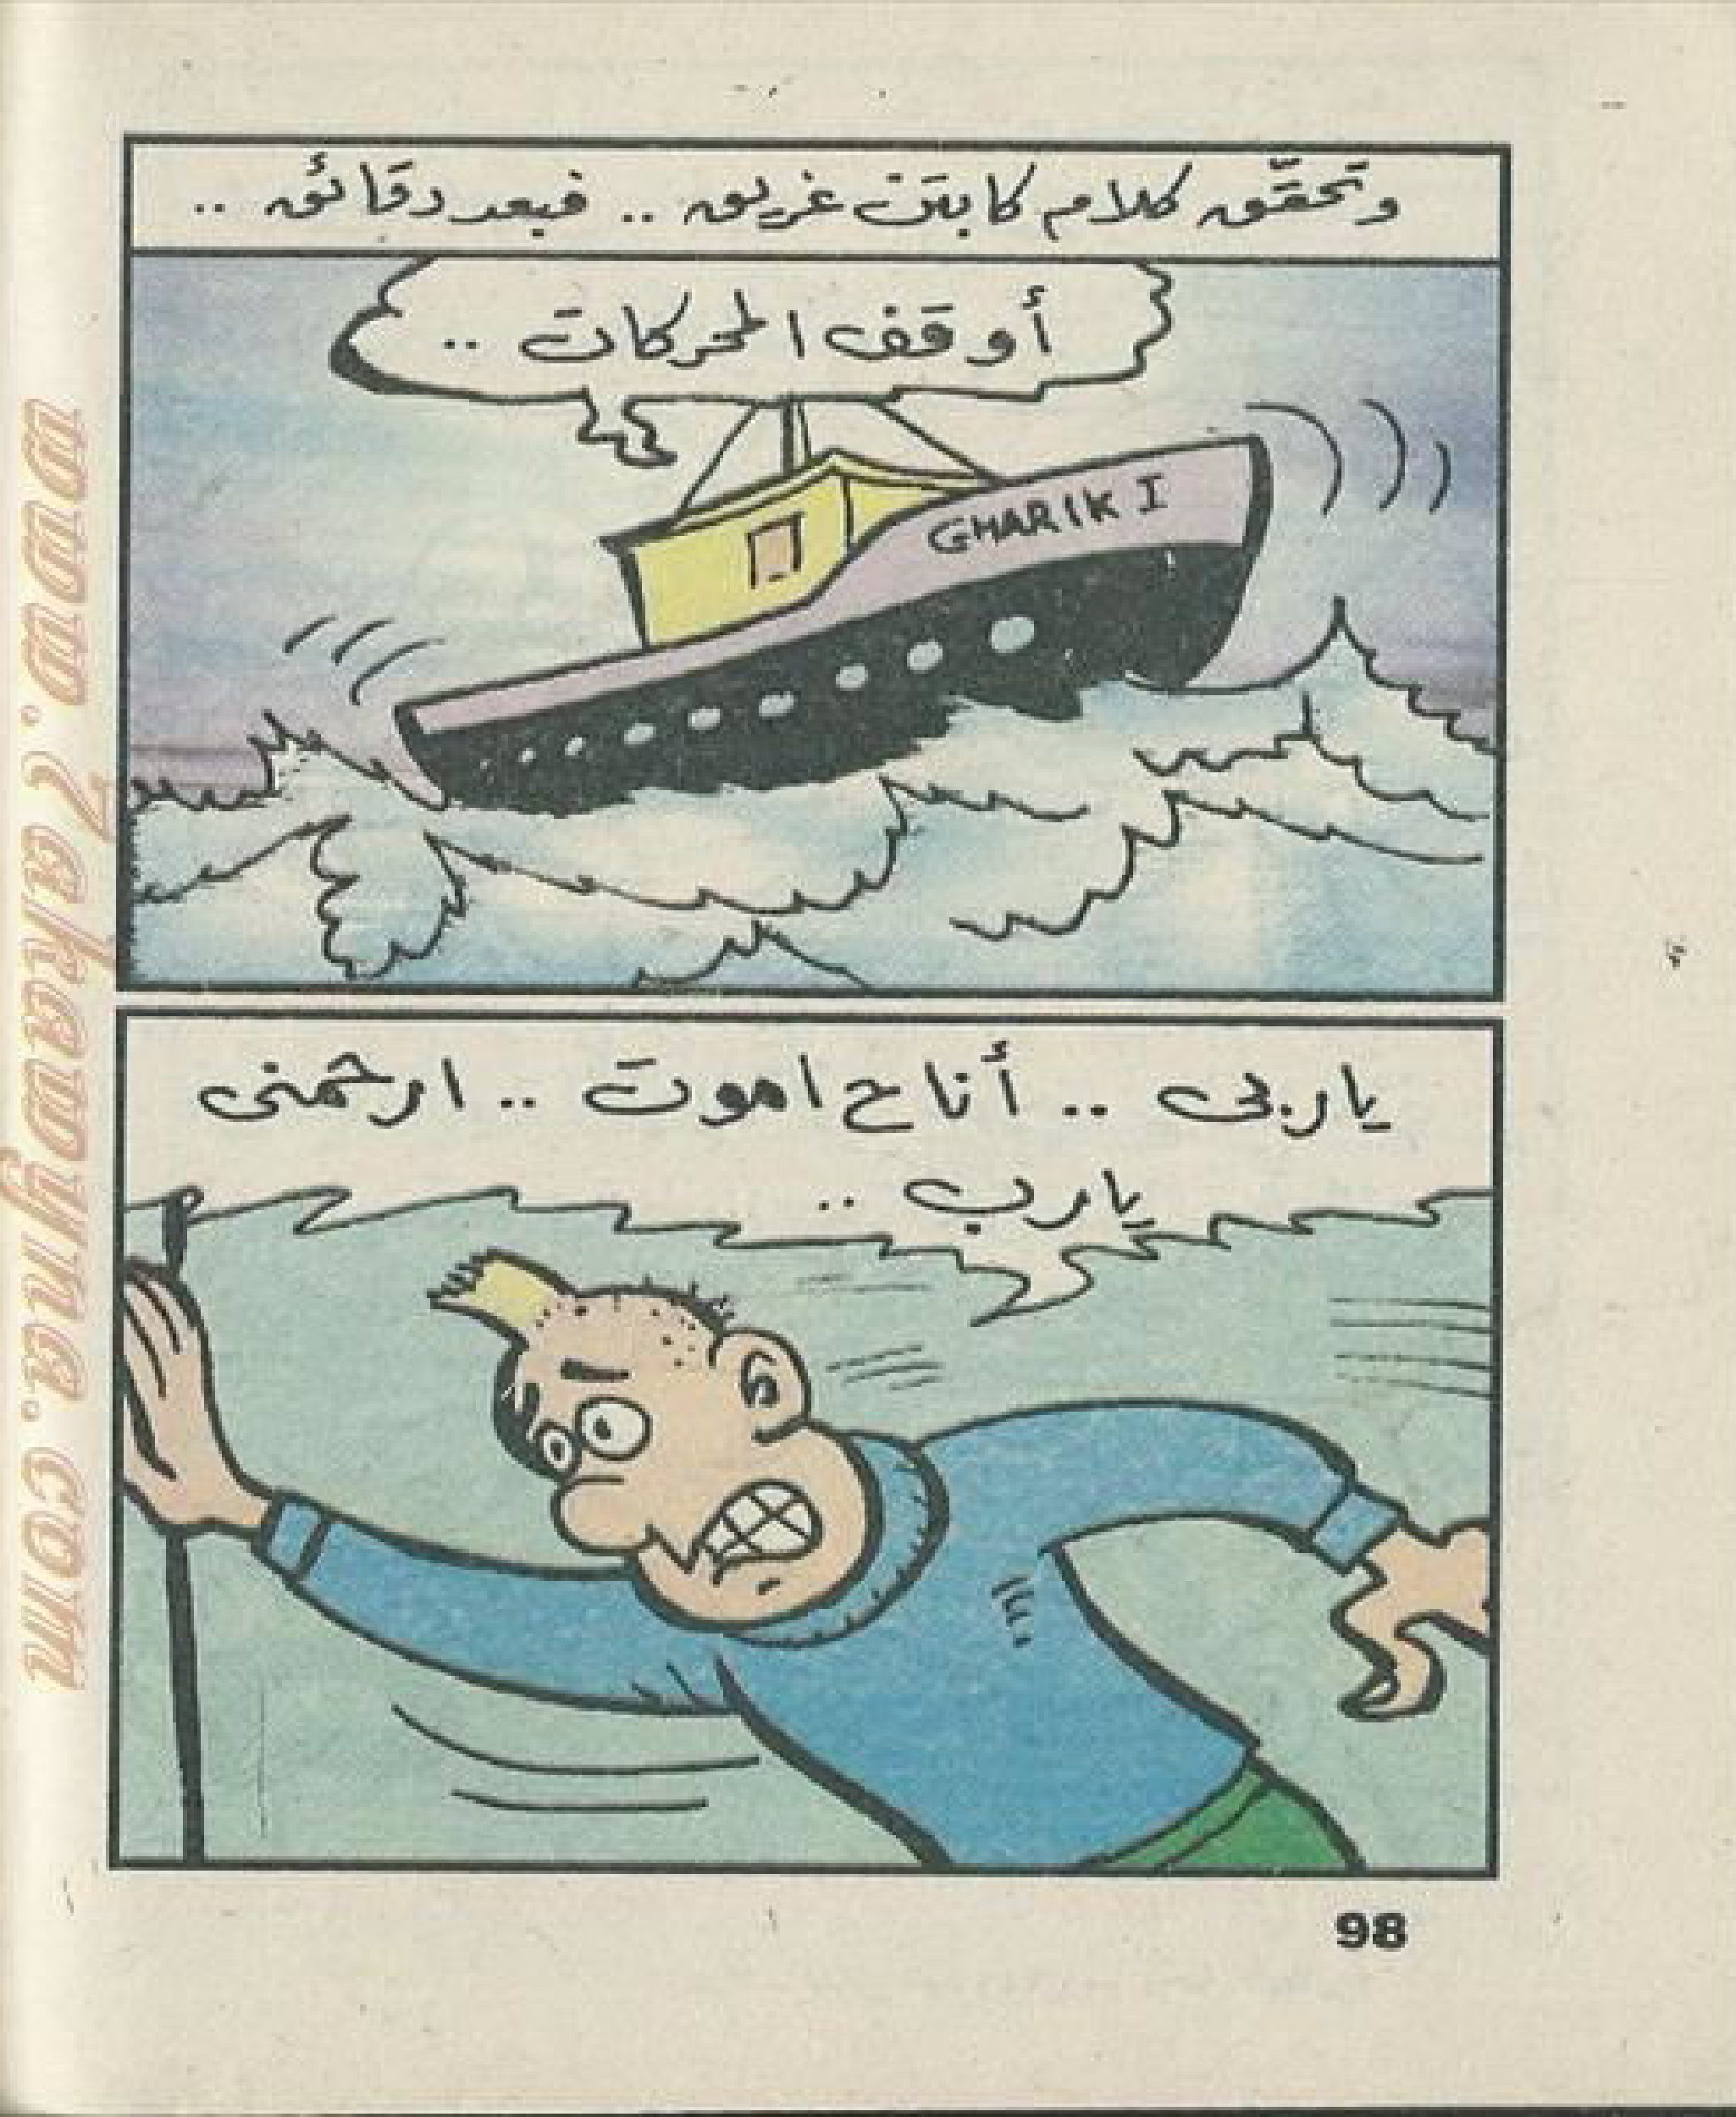 وتحقّق كلام كابتن غريق .. فبعد دقائق ..
أوقف المحركات ..
GHARIK I
ياربى .. أناح اموت .. ارحمنى
يارب ..
98
www.7akawyna.com